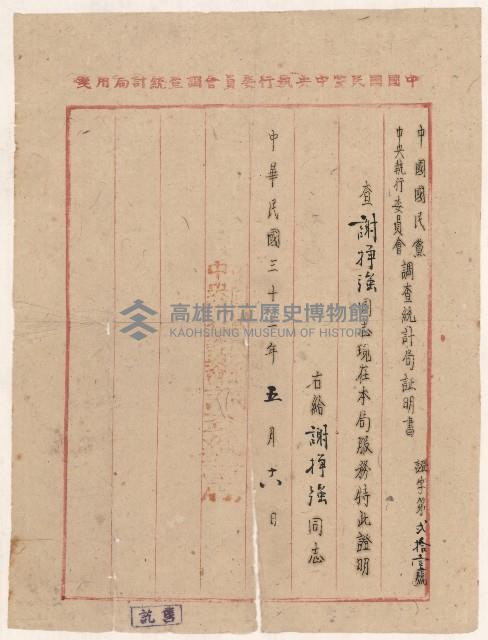 中國國民黨中央執行委員會調查統計局用箋
中國國民黨
中央執行委員會
調查統計局証明書
證字第弍拾壹號
查謝掙強同志現在本局服務特此證明
右給謝掙強同志
中華民國三十二年五月十八日
高雄市立歷史博物館
KAOHSIUNG MUSEUM OF HISTORY